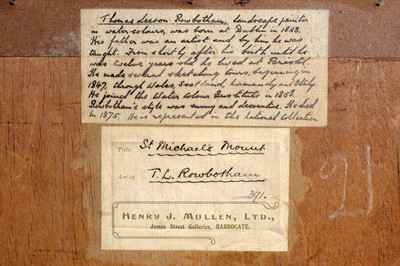 Thomas Leeson Rowbotham, landscape painter
in water colours, was born at Dublin in 1823.
His father was an artist and by him he was
taught. From shortly after his birth until he
was twelve years old he lived at Bristol.
He made several sketching tours, beginning in
1847, through Wales, Scotland, Normandy and Italy.
He joined the Water Colour Institute in 1858.
Rowbotham's style was sunny and decorative. He died
in 1875. He is represented in the national collection
Title St Michael's Mount
Artist T. L. Rowbotham
391.
HENRY J. MULLEN, LTD.,
James Street Galleries, HARROGATE.